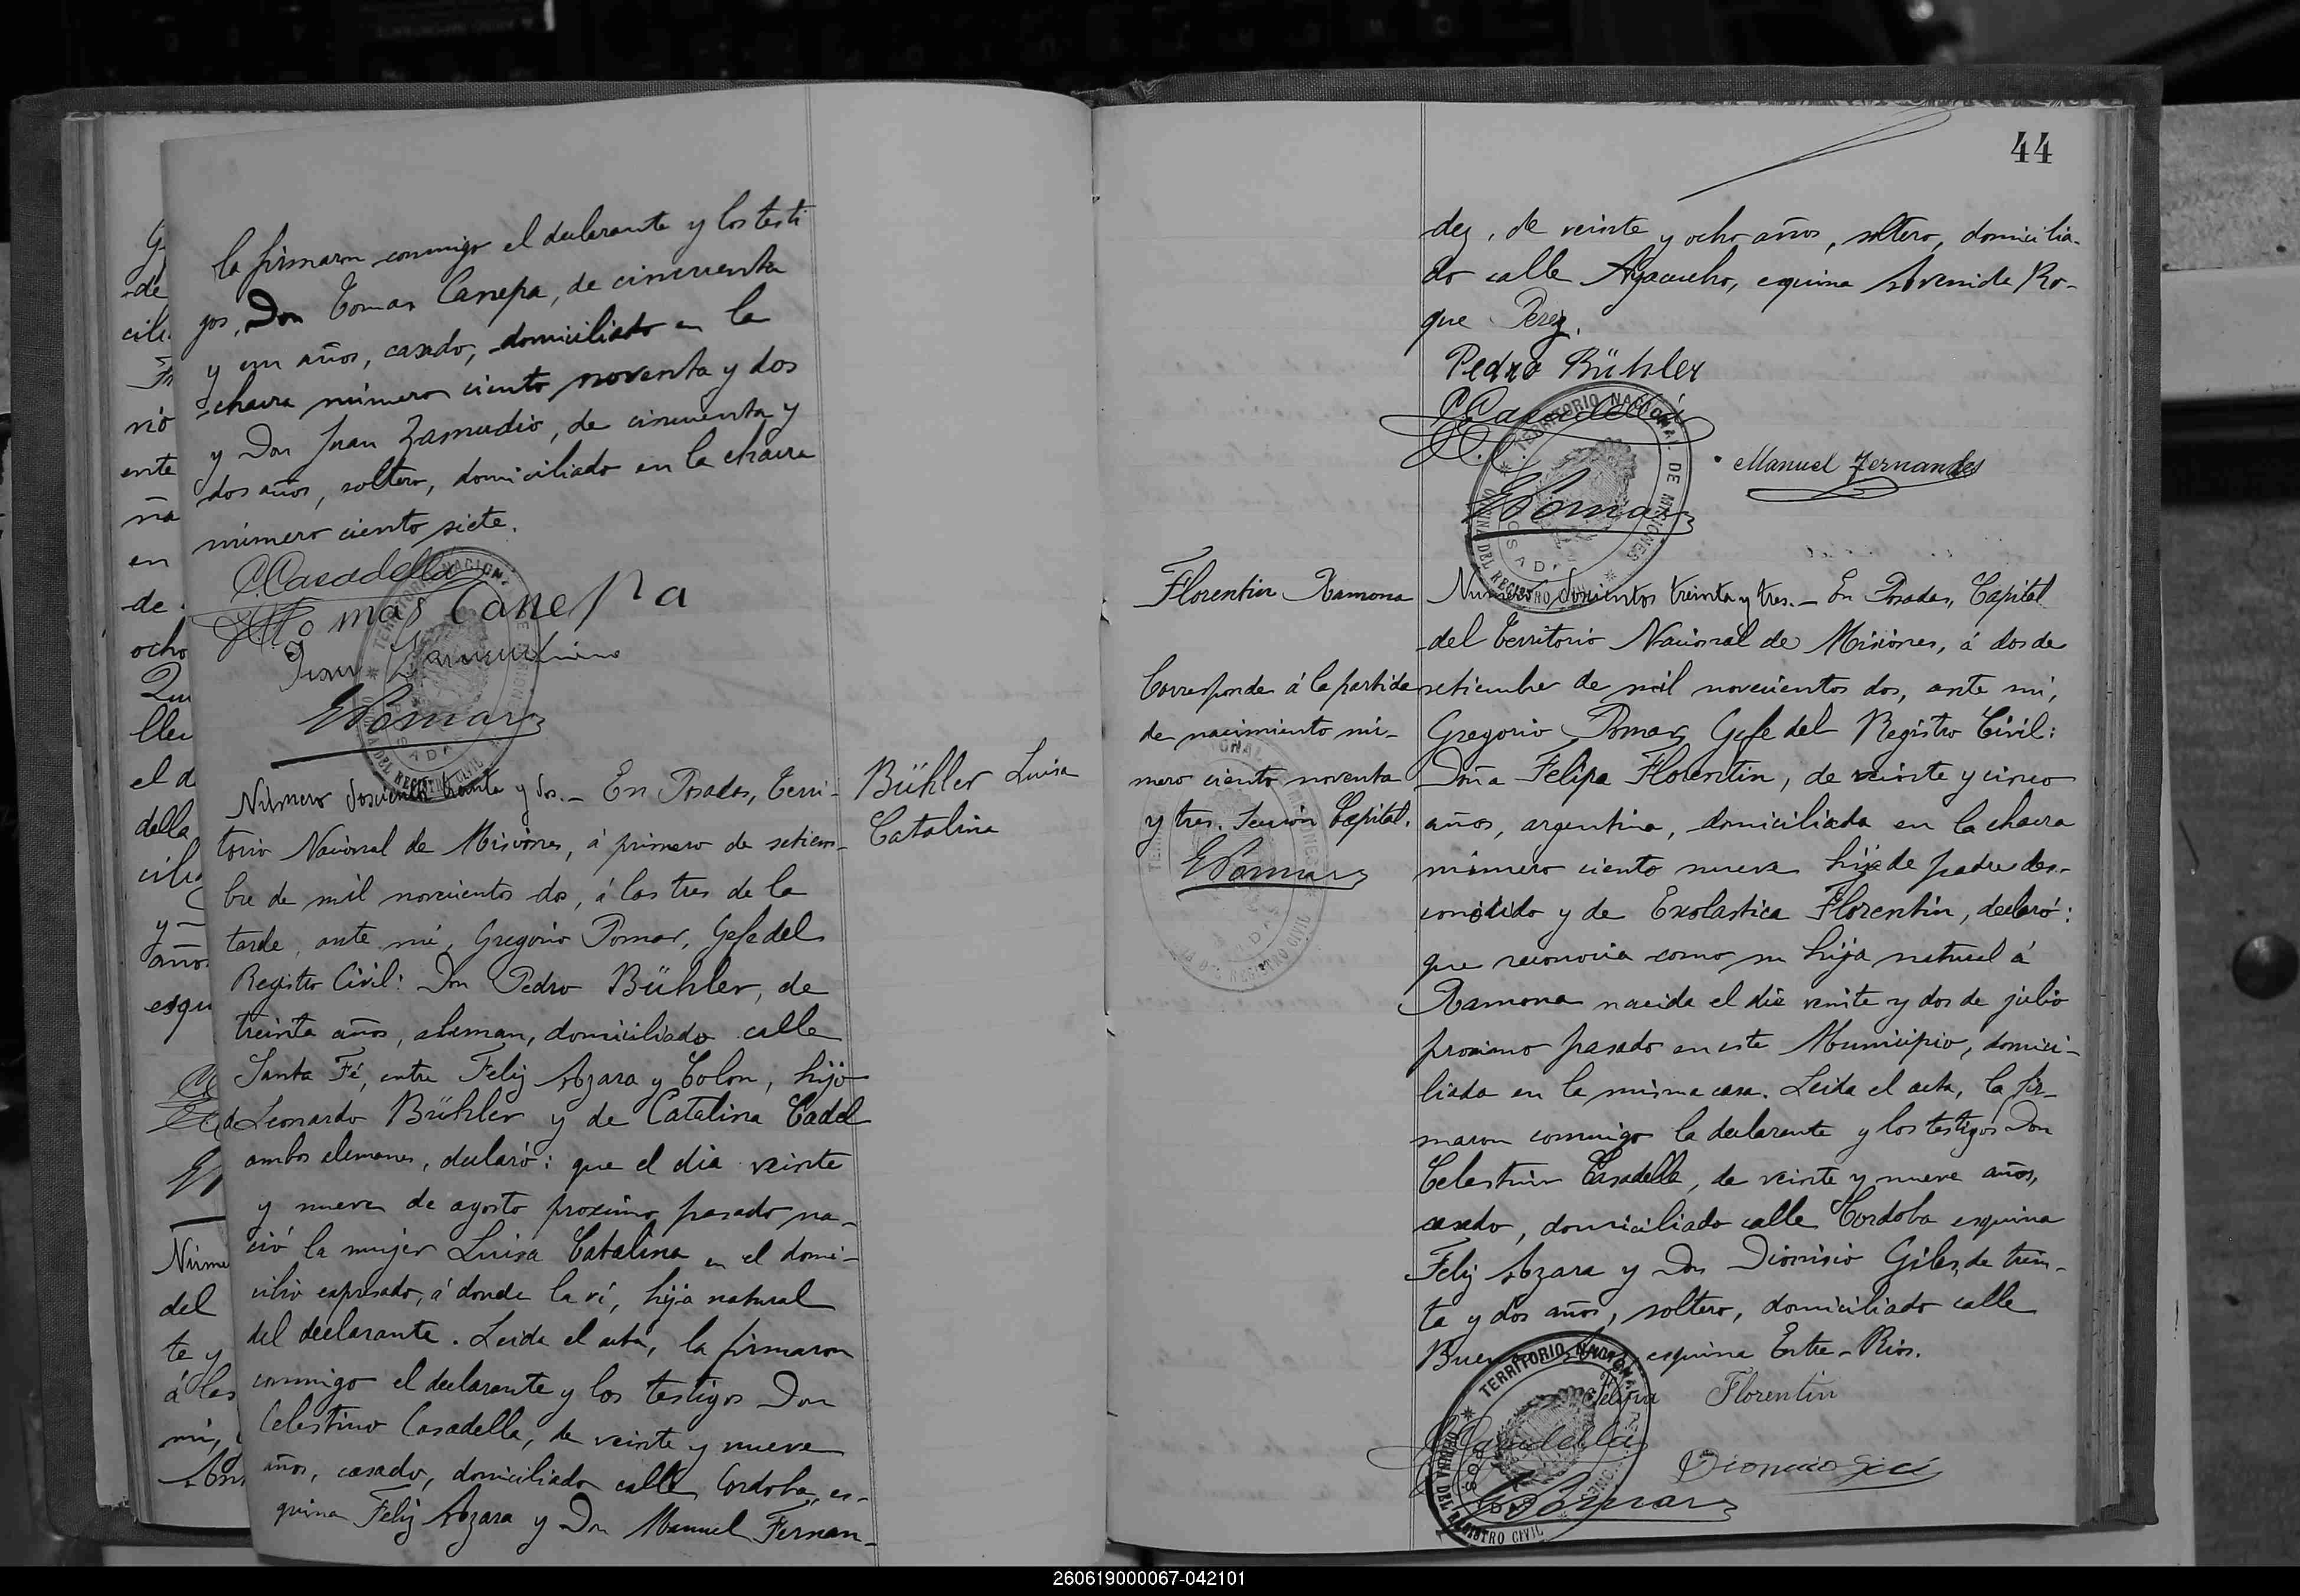 la firmaron conmigo el declarante y los testi
gos, Don Tomas Canepa, de cincuenta
y un años, casado, domiciliado en la
chacra número ciento noventa y dos
y Don Juan Zamudio, de cincuenta y
dos años, soltero, domiciliado en la chacra
número ciento siete.
C. Casadella
Tomas Canepa
Juan
GPomar
Número doscientos treinta y dos.- En Posadas, Terri-
torio Nacional de Misiones, á primero de setiem-
bre de mil novecientos dos, á las tres de la
tarde, ante mí, Gregorio Pomar, Gefe del
Registro Civil: Don Pedro Bühler, de
treinta años, aleman, domiciliado calle
Santa Fé, entre Feliz Azara y Colon, hijo
de Leonardo Bühler y de Catalina Cadel
ambos alemanes, declaró: que el dia veinte
y nueve de agosto proximo pasado na-
ció la mujer Luisa Catalina en el domi-
cilio expresado, á donde la ví, hija natural
del declarante. Leida el acta, la firmaron
conmigo el declarante y los testigos Don
Celestino Casadella, de veinte y nueve
años, casado, domiciliado calle Cordoba, es-
quina Feliz Azara y Don Manuel Fernan-
Bühler Luisa
Catalina
44
dez, de veinte y ocho años, soltero, domicilia-
do calle Ayacucho, esquina Avenida Ro-
que Perez.
Pedro Bühler
C. Casadella
Manuel Fernandes
GPomar
TERRITORIO NACIONAL DE MISIONES
OFICINA DEL REGISTRO CIVIL
POSADAS
Florentin Ramona
Corresponde á la partida
de nacimiento nú-
mero ciento noventa
y tres. Seccion Capital.
GPomar
Número doscientos treinta y tres.- En Posadas, Capital
del Territorio Nacional de Misiones, á dos de
setiembre de mil novecientos dos, ante mí,
Gregorio Pomar, Gefe del Registro Civil:
Doña Felipa Florentin, de veinte y cinco
años, argentina, domiciliada en la chacra
número ciento nueve hija de padre des-
conocido y de Exolastica Florentin, declaró:
que reconocia como su hija natural á
Ramona nacida el dia veinte y dos de julio
proximo pasado en este Municipio, domici-
liada en la misma casa. Leida el acta, la fir-
maron conmigo la declarante y los testigos Don
Celestino Casadella, de veinte y nueve años,
casado, domiciliado calle Cordoba esquina
Feliz Azara y Don Dionisio Giles, de trein-
ta y dos años, soltero, domiciliado calle
Buenos Aires, esquina Entre-Rios.
Felipa Florentin
C. Casadella
Dionicio
GPomar
TERRITORIO NACIONAL DE MISIONES
DEL REGISTRO CIVIL
260619000067-042101